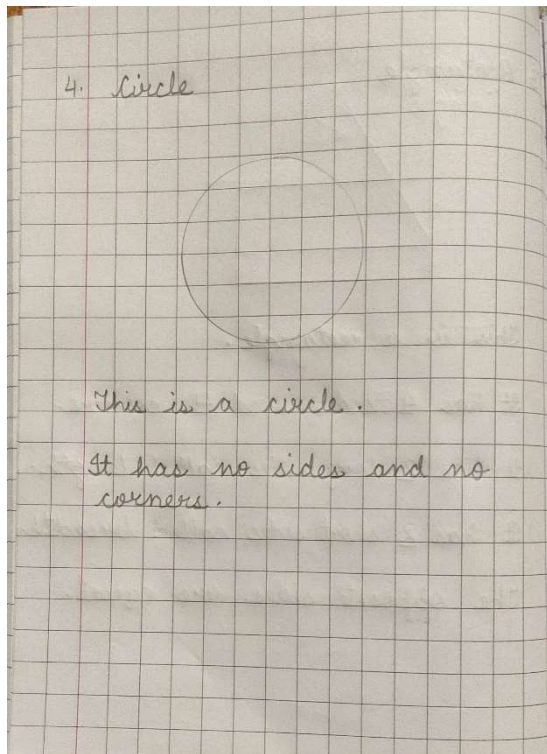 4. Circle
This is a circle.
It has no sides and no
corners.